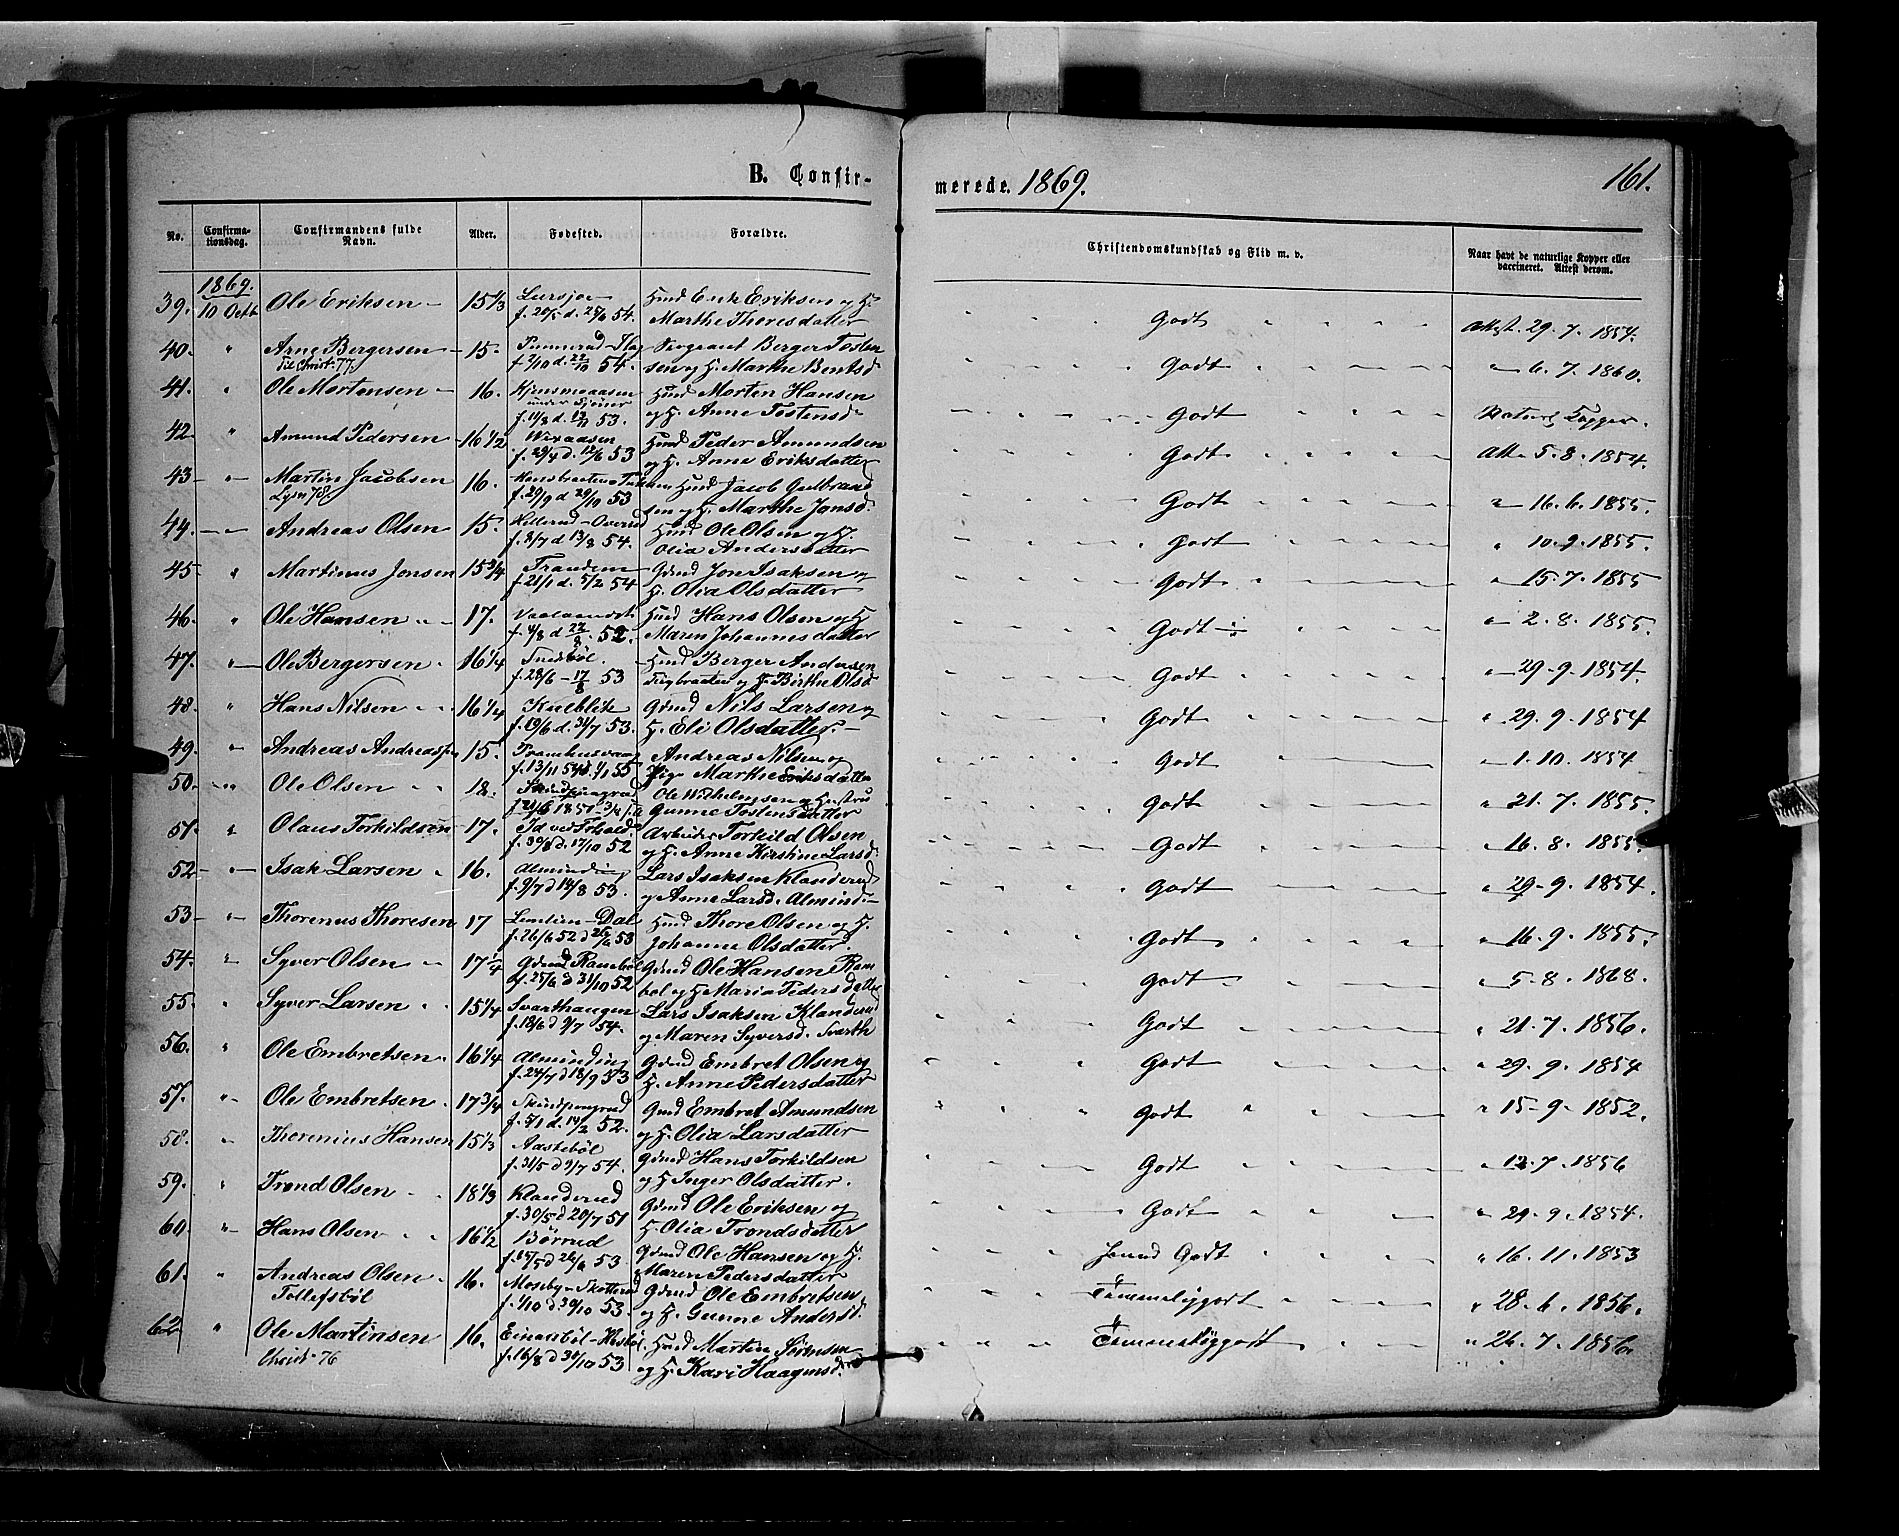 B. Confir-
merede. 1869.
161.
No.
Confirma-
tionsdag.
Confirmandens fulde
Navn.
Alder.
Fødested.
Forældre.
Christendomskundskab og Flid m. v.
Naar havt de naturlige Kopper eller
vaccineret. Attest derom.
1869.
39. 10 Octb Ole Eriksen 15 1/3
f. 20/5 d. 25/6 54.
Eriksen og H.
Marthe Thoresdatter
Godt
Attest. 29. 7. 1854.
40. " Arne Bergersen 15.
Til Christ. 77.
f. 2/10 d. 22/10 54.
Sergeant Berger Tosten
sen og H. Marthe Bentsd
Godt
" 6. 7. 1860.
41. " Ole Mortensen 16.
f. 11/8 d. 53.
Huusmd Morten Hansen
og H. Anne Tostensd
Godt
Naturl Kopper.
42. " Amund Pedersen 16 1/2
f. 29/4 d. 12/6 53
Huusmd Peder Amundsen
og H. Anne Eriksdatter
Godt
Att 5. 8. 1854.
43. " Martin Jacobsen 16.
f. 29/9 d 29/10 53
Jacob Gulbrand
sen og H. Marthe Jonsd.
Godt
" 16. 6. 1855.
44. " Andreas Olsen 15.
f. 8/7 d 13/8 54.
Ole Olsen og H.
Olia Andersdatter
Godt
" 10. 9. 1855.
45. " Martinus Jonsen 15 3/4
f. 21/1 d. 5/2 54
Gdmd Jon Isaksen og
H. Olia Olsdatter
Godt
" 15. 7. 1855
46. " Ole Hansen 17.
f. 4/8 d 22/8. 52.
Hans Olsen og H
Maren Johannesdatter
Godt
" 2. 8. 1855.
47. " Ole Bergersen 16 1/4
f. 28/6 - 17/8 53
Berger Andersen
og H. Birthe Olsd
Godt
" 29. 9. 1854.
48. " Hans Nilsen 16 1/4
Kulblik
f. 19/6 d. 31/7 53.
Gdmd Nils Larsen og
H. Eli Olsdatter.
Godt
" 29. 9. 1854
49. " Andreas Andreassen 15.
f. 13/11 54 d. 1/1 55
Andreas Nilsen og
Pige Marthe Eriksdatter
Godt
" 1. 10. 1854
50. " Ole Olsen 18.
Ole Wilhelmsen og Hustru
Gunne Tostensdatter
Godt
" 21. 7. 1855.
51. " Olaus Torkildsen 17.
Id ved Frhald.
d. 17/10 52
Arbeider Torkild Olsen
og H. Anne Kirstine Larsd.
Godt
" 16. 8. 1855.
52. " Isak Larsen 16.
Alminding
f. 9/7 d 14/8 53.
Lars Isaksen Klanderud
og Anne Larsd. Almind.
Godt
" 29. 9. 1854.
53. " Thorenus Thoresen 17
f. 26/6 52 d
Thore Olsen og H.
Johanne Olsdatter.
Godt
" 16. 9. 1855.
54. " Syver Olsen 17 1/4
f. 25/6 d 31/10 52
Gdmd Ole Hansen Ram
bøl og H Maria Pedersdatter
Godt
" 5. 8. 1868.
55. " Syver Larsen 15 1/4
Svarthaugen
f. 18/6 d 9/7 54.
Lars Isaksen Klanderud
og Maren Syversd. Svarth
Godt
" 21. 7. 1856.
56. " Ole Embretsen 16 1/4
Alminding
f. 24/7 d 18/9 53
Gdmd Embret Olsen og
H. Anne Pedersdatter
Godt
" 29. 9. 1854
57. " Ole Embretsen 17 3/4
Skindpungrud
f. 5/1 d. 14/2 52.
Gmd Embret Amundsen
og H. Olia Larsdatter
Godt
" 15. 9. 1852.
58. " Thorenius Hansen 15 1/3
Aastebøl
f. 31/5 d 9/7 54.
Gdmd Hans Torkildsen
og H Inger Olsdatter.
Godt
" 12. 7. 1856
59. " Trond Olsen 18 1/3
Klanderud
f. 30/5 d 20/7 51
Gdmd Ole Eriksen og
H. Olia Trondsdatter
Godt
" 29. 9. 1854.
60. " Hans Olsen 16 1/2
Børrud
d 26/6 53
Gdmd Ole Hansen og H.
Maren Pedersdatter
Godt
" 16. 11. 1853
61. " Andreas Olsen 16.
Tollefsbøl
Moseby - Skotterud
f. 1/10 d 30/10 53.
Gdmd Ole Embretsen
og H. Gunne Andersd.
Temmeliggodt
" 28. 6. 1856.
62. " Ole Martinsen 16.
Christ. 76
f. 16/8 d 30/10 53
Martin Sørensen
og H. Kari Haagensd.
Temmeliggodt
" 26. 7. 1856.